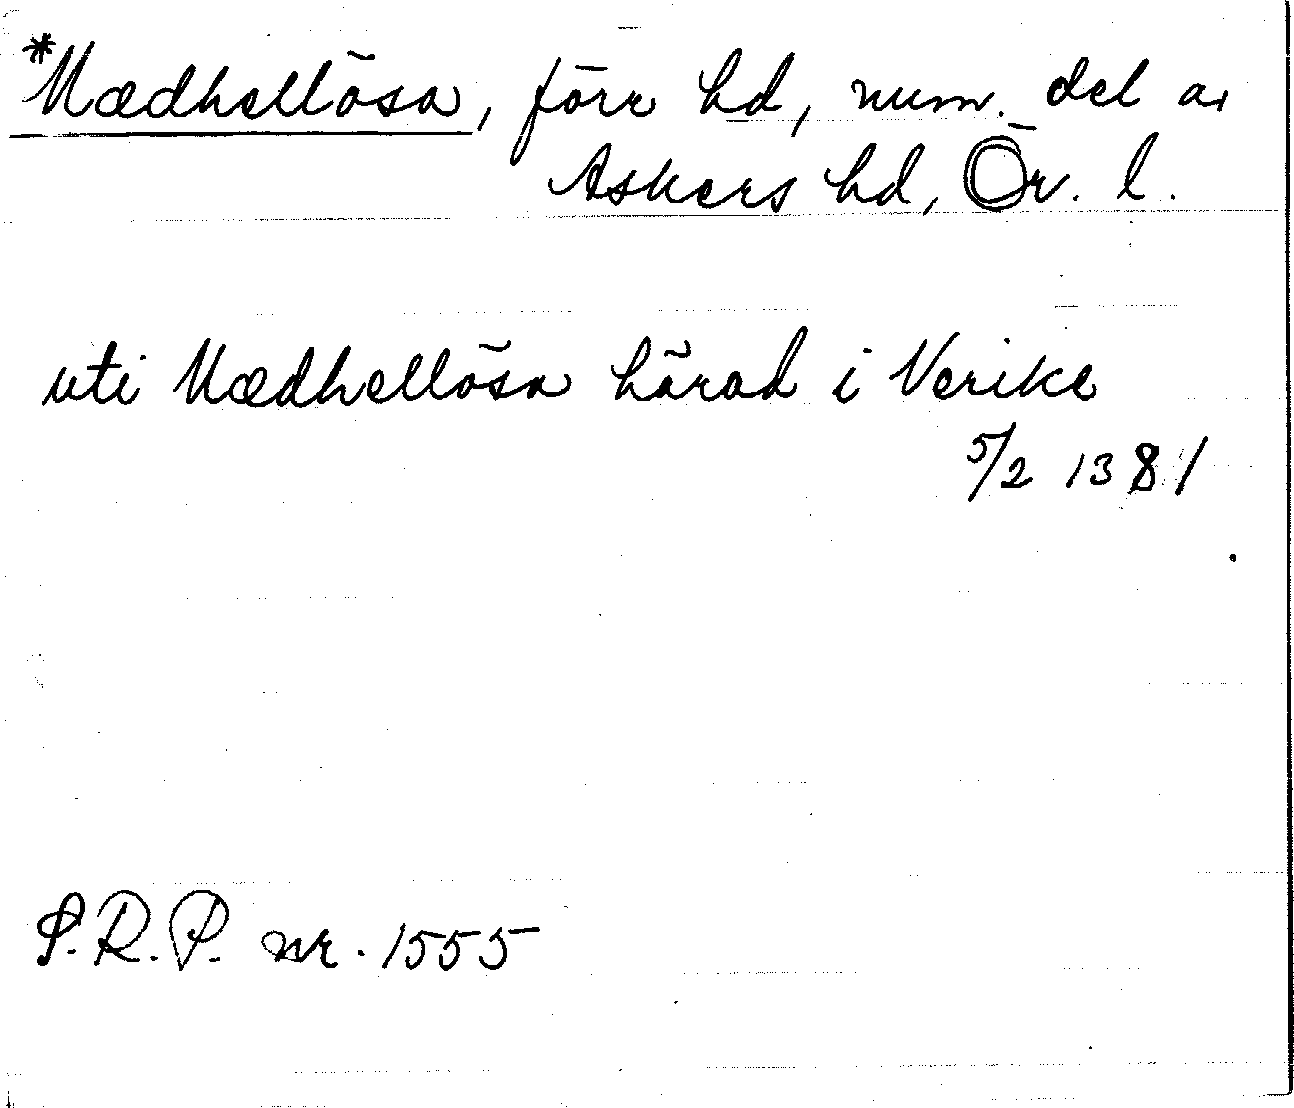 *Mædhellösa, förr hd, num. del av
Askers hd, Ör. l.
uti Mædhellösa härad i Nerike
5/2 1381
S.R.P. nr. 1555